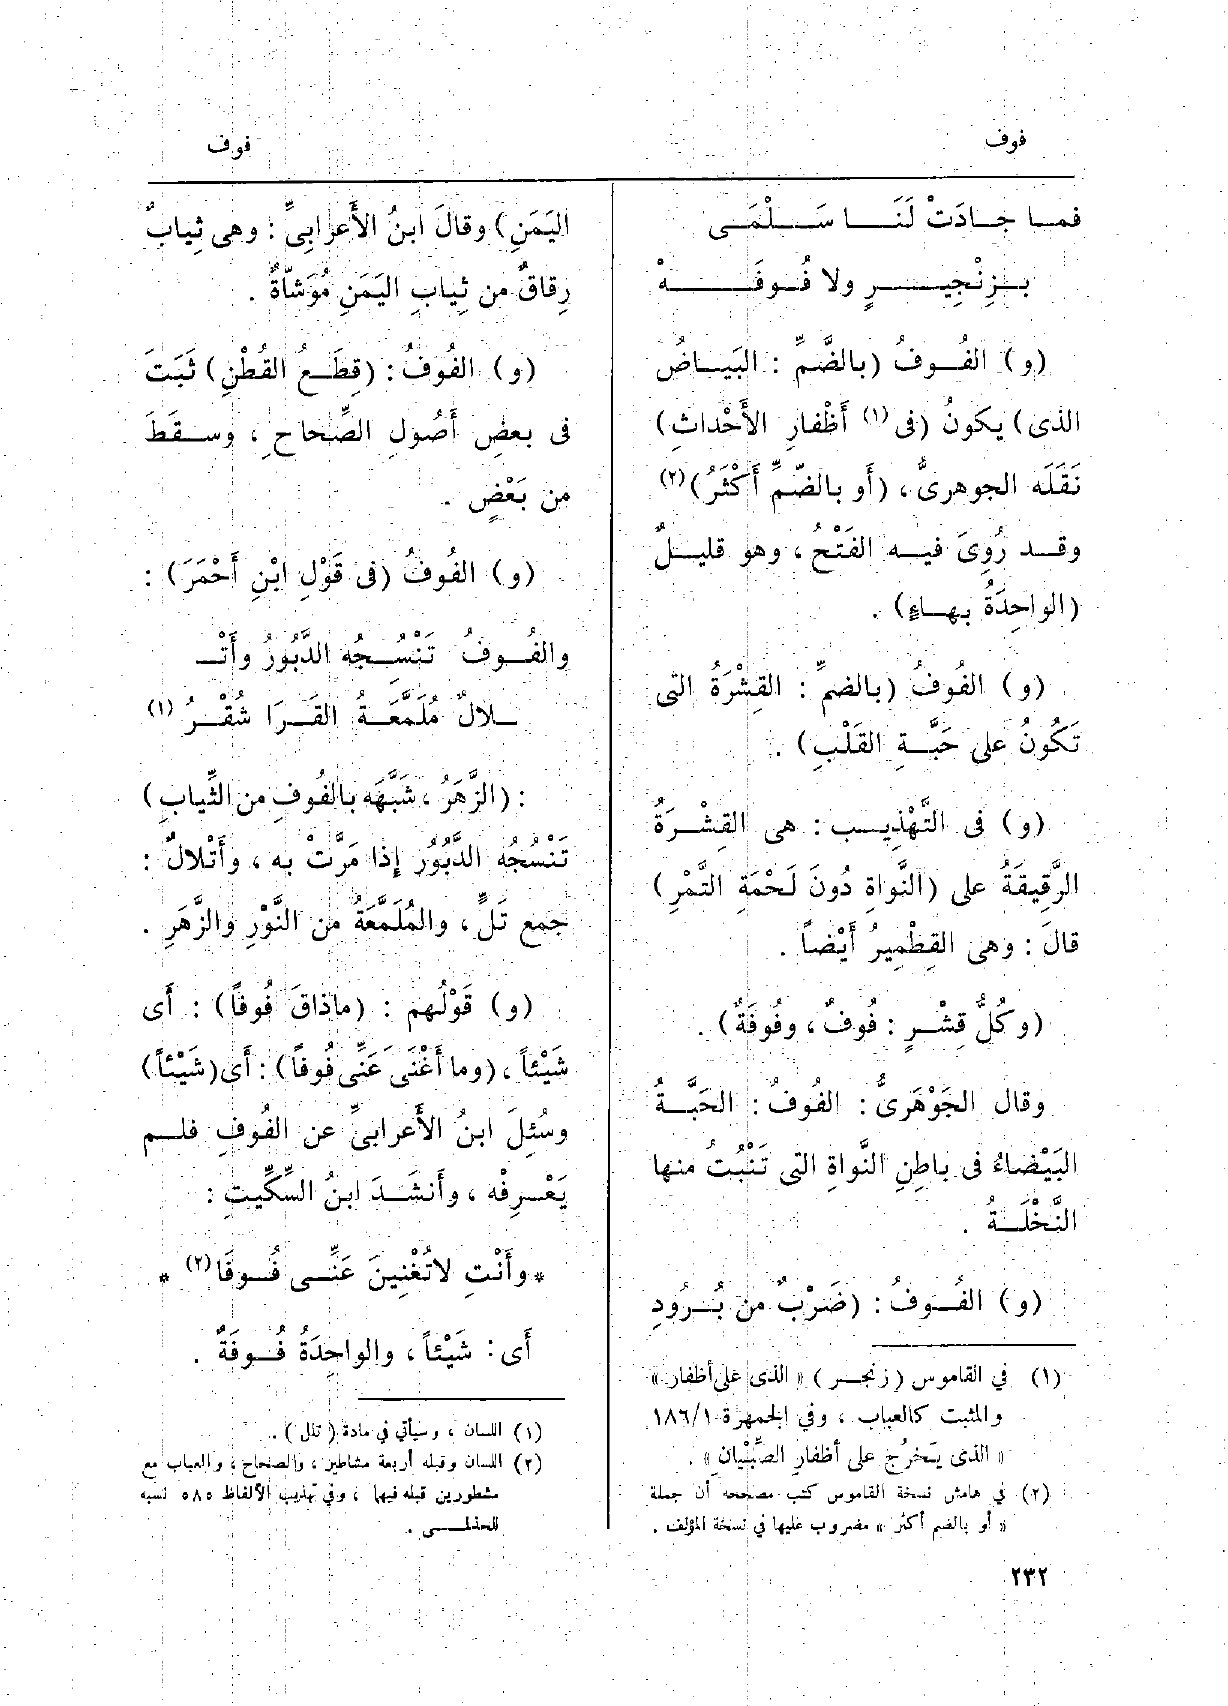 فوف
فوف
فمـا جـادَتْ لَنَـا سَـلْمَـى
بـزِنْجِيـرٍ ولا فُـوفَـهْ
(و) الفُـوفُ (بالضَّمِّ : البَيـاضُ
الذى) يكونُ (فى (١) أَظْفارِ الأَحْداثِ)
نَقَلَه الجوهرىُّ ، (أَو بالضَّمِّ أَكْثَرُ) (٢)
وقـد رُوِىَ فيـه الفَتْحُ ، وهو قليـلٌ
(الواحِدَةُ بـهـاءٍ) .
(و) الفُوفُ (بالضمِّ : القِشْرَةُ التى
تَكُونُ على حَبَّـةِ القَلْبِ) .
(و) فى التَّهْذِيـب : هى القِشْـرَةُ
الرَّقِيقَةُ على (النَّواةِ دُونَ لَحْمَةِ التَّمْرِ)
قالَ : وهى القِطْمِيرُ أَيْضاً .
(وكُلُّ قِشْـرٍ : فُوفٌ ، وفُوفَةٌ) .
وقال الجَوْهَرِىُّ : الفُوفُ : الحَبَّـةُ
البَيْضاءُ فى باطِنِ النَّواةِ التى تَنْبُتُ منها
النَّخْلَـةُ .
(و) الفُـوفُ : (ضَرْبٌ من بُـرُودِ
(١) في القاموس (زنجـر) « الذى على أظفار »
والمثبت كالعباب ، وفي الجمهرة ١٨٦/١
« الذى يَخرُج على أظفارِ الصِّبْيان » .
(٢) في هامش نسخة القاموس كتب مصححه أن جملة
« أو بالضم أكثر » مضروب عليها في نسخة المؤلف .
اليَمَنِ) وقالَ ابنُ الأَعرابِىِّ : وهى ثِيابٌ
رِقاقٌ من ثِيابِ اليَمَنِ مُوَشّاةٌ .
(و) الفُوفُ : (قِطَـعُ القُطْنِ) ثَبَتَ
فى بعضِ أُصُولِ الصِّحاحِ ، وسـقَطَ
من بَعْضٍ .
(و) الفُوفُ (فى قَوْلِ ابْنِ أَحْمَرَ) :
والفُـوفُ تَنْسُـجُه الدَّبُورُ وأَتْـ
ـلالٌ مُلَمَّعَـةُ القَـرَا شُقْـرُ (١)
: (الزَّهَرُ ، شَبَّهَه بالفُوفِ من الثِّيابِ)
تَنْسُجُه الدَّبُورُ إذا مَرَّتْ به ، وأَتْلالٌ :
جمع تَلٍّ ، والمُلَمَّعَةُ من النَّوْرِ والزَّهَرِ .
(و) قَوْلُهم : (ماذاقَ فُوفاً) : أَى
شَيْئاً ، (وما أَغْنَى عَنِّى فُوفاً) : أَى (شَيْئاً)
وسُئِلَ ابنُ الأَعرابىِّ عن الفُوفِ فلـم
يَعْـرِفْه ، وأَنشَـدَ ابنُ السِّكِّيتِ :
* وأَنْتِ لاتُغْنِينَ عَنِّـى فُـوفَا (٢) *
أَى : شَيْئاً ، والواحِدَةُ فُـوفَةٌ .
(١) اللسان ، وسيأتي في مادة (تلل) .
(٢) اللسان وقبله أربعة مشاطير ، والصحاح ، والعباب مع
مشطورين قبله فيها ، وفي تهذيب الألفاظ ٥٨٥ نسبه
للهذلـى .
٢٣٢